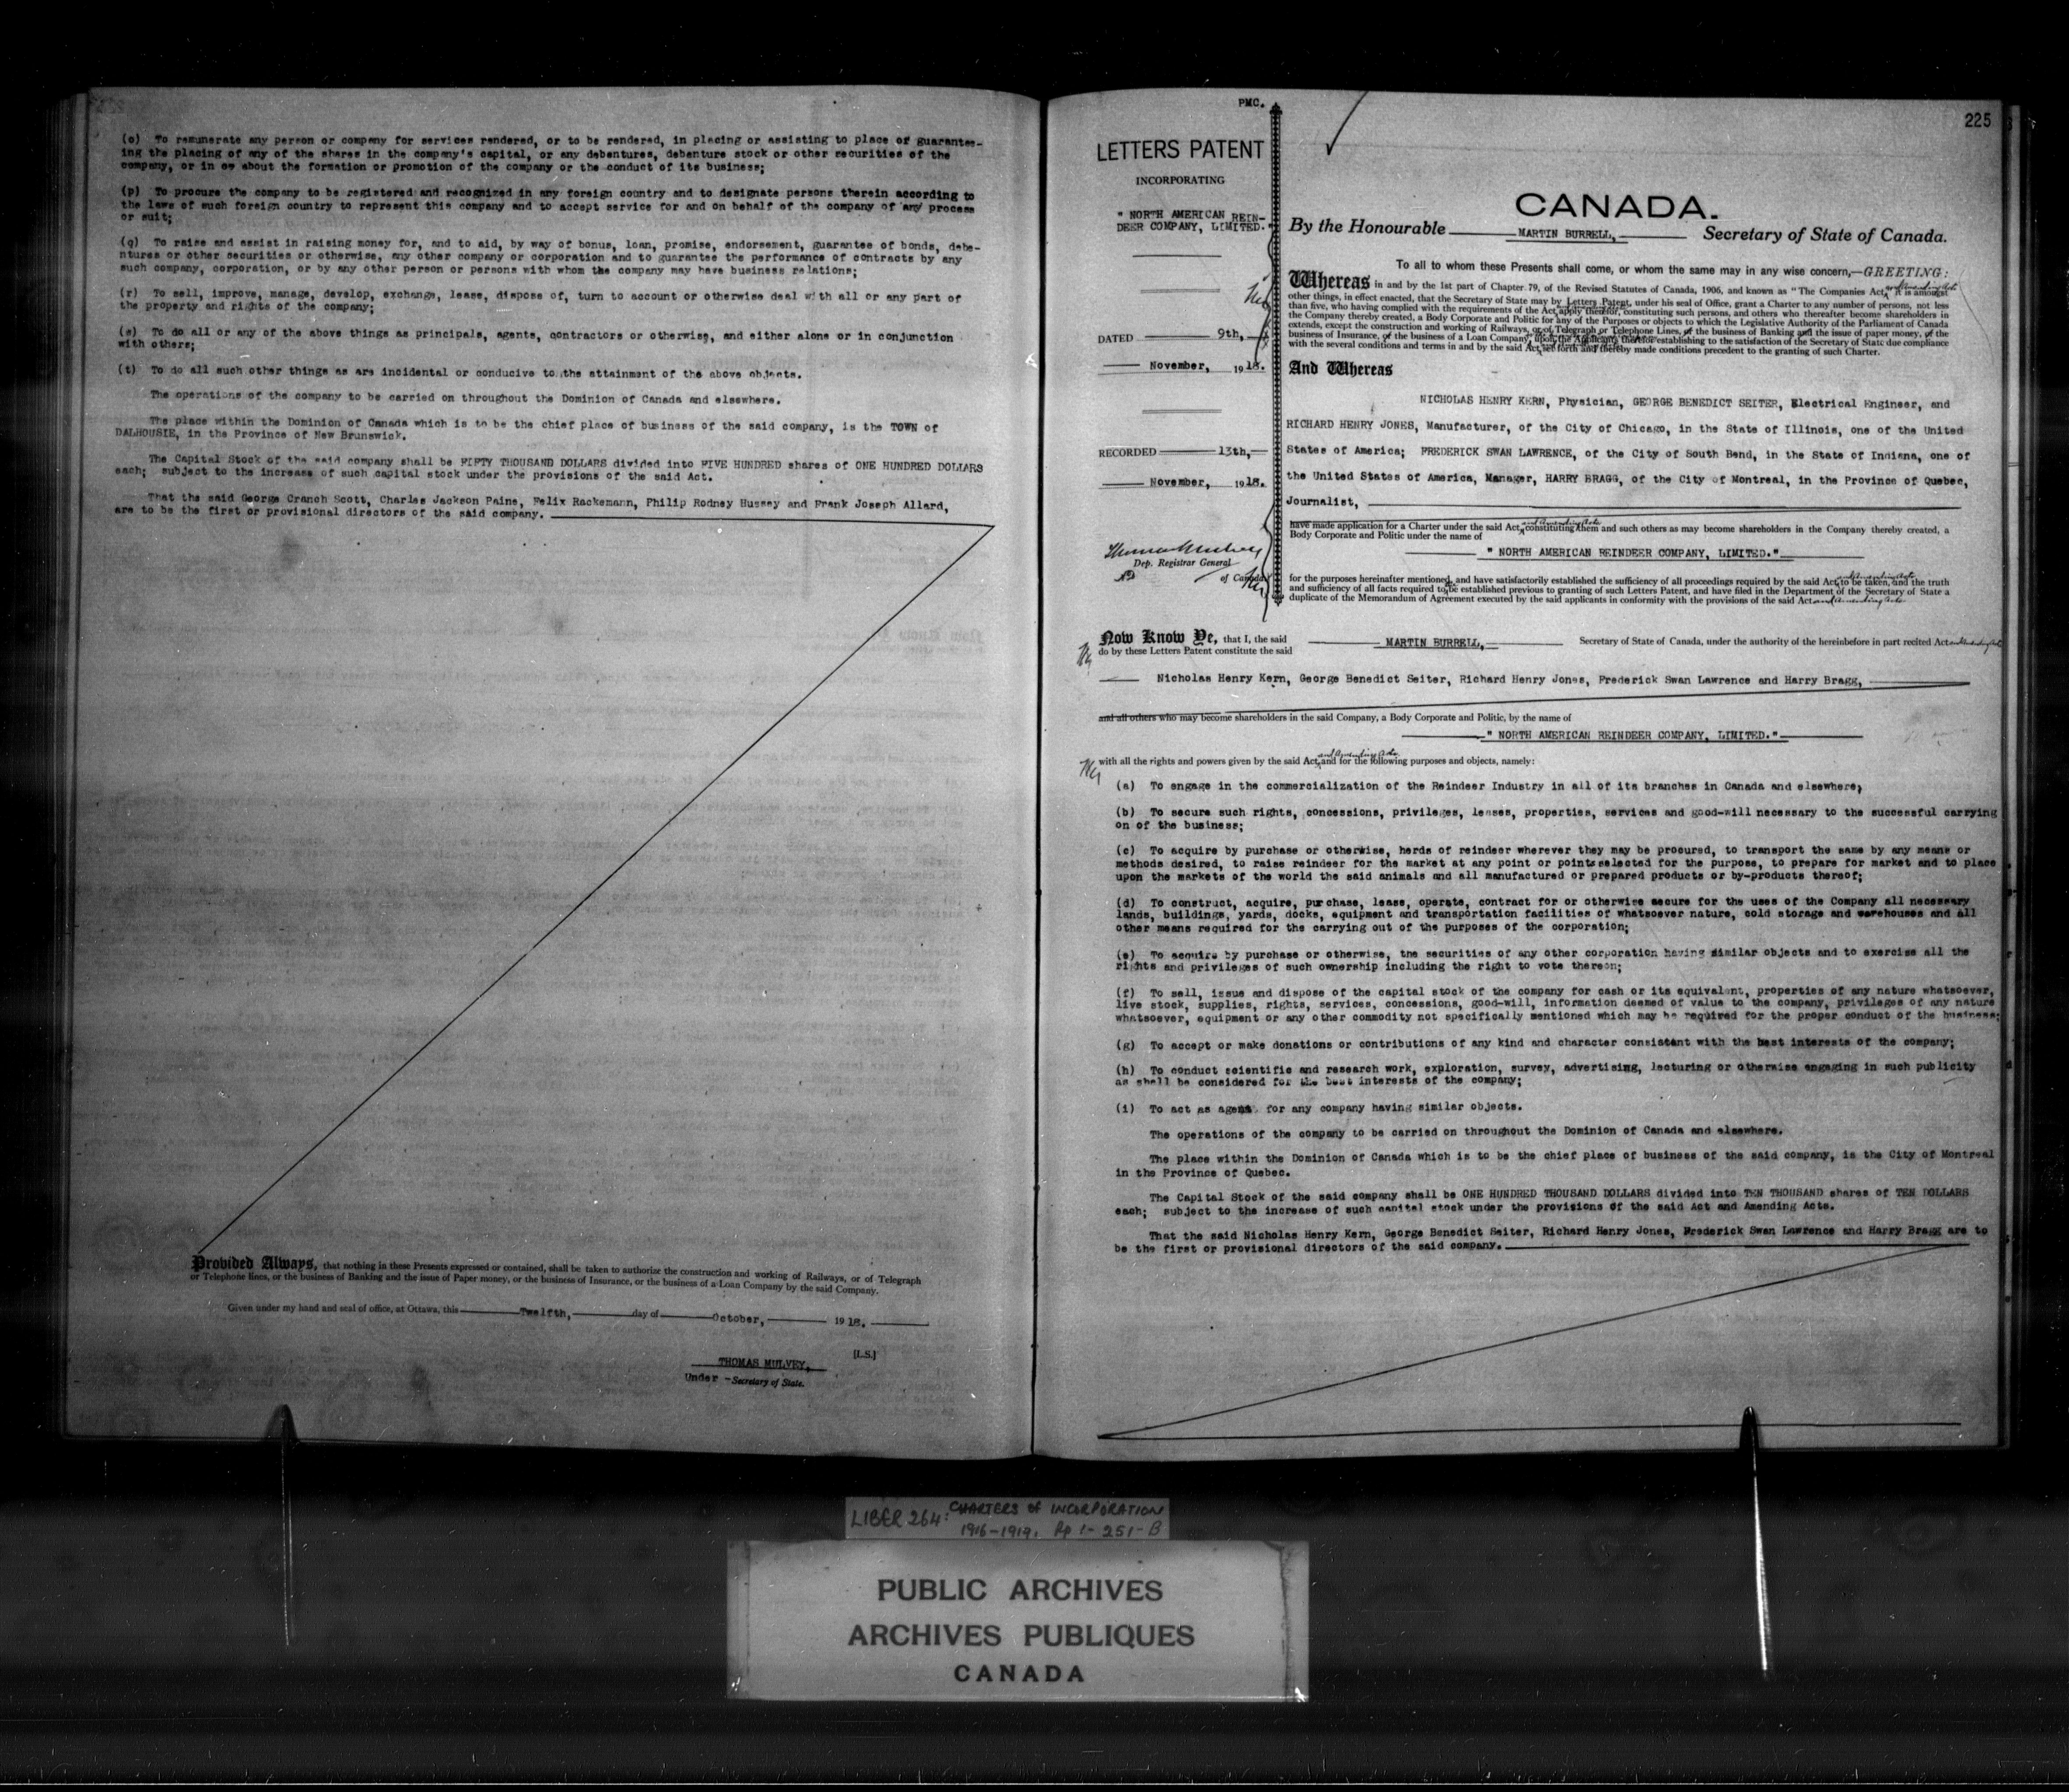 (o) To remunerate any person or company for services rendered, or to be rendered, in placing or assisting to place or guarantee-
ing the placing of any of the shares in the company's capital, or any debentures, debenture stock or other securities of the
company, or in or about the formation or promotion of the company or the conduct of its business;
(p) To procure the company to be registered and recognized in any foreign country and to designate persons therein according to
the laws of such foreign country to represent this company and to accept service for and on behalf of the company of any process
or suit;
(q) To raise and assist in raising money for, and to aid, by way of bonus, loan, promise, endorsement, guarantee of bonds, debe-
ntures or other securities or otherwise, any other company or corporation and to guarantee the performance of contracts by any
such company, corporation, or by any other person or persons with whom the company may have business relations;
(r) To sell, improve, manage, develop, exchange, lease, dispose of, turn to account or otherwise deal with all or any part of
the property and rights of the company;
(s) To do all or any of the above things as principals, agents, contractors or otherwise, and either alone or in conjunction
with others;
(t) To do all such other things as are incidental or conducive to the attainment of the above objects.
The operations of the company to be carried on throughout the Dominion of Canada and elsewhere.
The place within the Dominion of Canada which is to be the chief place of business of the said company, is the TOWN of
DALHOUSIE, in the Province of New Brunswick.
The Capital Stock of the said company shall be FIFTY THOUSAND DOLLARS divided into FIVE HUNDRED shares of ONE HUNDRED DOLLARS
each; subject to the increase of such capital stock under the provisions of the said Act.
That the said George Cranch Scott, Charles Jackson Paine, Felix Rackemann, Philip Rodney Hussey and Frank Joseph Allard,
are to be the first or provisional directors of the said company.
Provided Always, that nothing in these Presents expressed or contained, shall be taken to authorize the construction and working of Railways, or of Telegraph
or Telephone lines, or the business of Banking and the issue of Paper money, or the business of Insurance, or the business of a Loan Company by the said Company.
Given under my hand and seal of office, at Ottawa, this Twelfth, day of October, 1918.
[L.S.]
THOMAS MULVEY,
Under - Secretary of State.
PMC.
225
LETTERS PATENT
INCORPORATING
" NORTH AMERICAN REIN-
DEER COMPANY, LIMITED."
DATED 9th,
November, 1918.
RECORDED 13th,
November, 1918.
Dep. Registrar General
of Canada
CANADA.
By the Honourable MARTIN BURRELL, Secretary of State of Canada.
To all to whom these Presents shall come, or whom the same may in any wise concern,—GREETING:
Whereas in and by the 1st part of Chapter 79, of the Revised Statutes of Canada, 1906, and known as "The Companies Act, and Amending Acts it is amongst
other things, in effect enacted, that the Secretary of State may by Letters Patent, under his seal of Office, grant a Charter to any number of persons, not less
than five, who having complied with the requirements of the Act, apply therefor, constituting such persons, and others who thereafter become shareholders in
the Company thereby created, a Body Corporate and Politic for any of the Purposes or objects to which the Legislative Authority of the Parliament of Canada
extends, except the construction and working of Railways, or of Telegraph or Telephone Lines, of the business of Banking and the issue of paper money, of the
business of Insurance, of the business of a Loan Company, upon the Applicants therefor establishing to the satisfaction of the Secretary of State due compliance
with the several conditions and terms in and by the said Act, set forth and thereby made conditions precedent to the granting of such Charter.
And Whereas
NICHOLAS HENRY KERN, Physician, GEORGE BENEDICT SEITER, Electrical Engineer, and
RICHARD HENRY JONES, Manufacturer, of the City of Chicago, in the State of Illinois, one of the United
States of America; FREDERICK SWAN LAWRENCE, of the City of South Bend, in the State of Indiana, one of
the United States of America, Manager, HARRY BRAGG, of the City of Montreal, in the Province of Quebec,
Journalist,
have made application for a Charter under the said Act, and Amending Acts constituting them and such others as may become shareholders in the Company thereby created, a
Body Corporate and Politic under the name of
" NORTH AMERICAN REINDEER COMPANY, LIMITED."
for the purposes hereinafter mentioned, and have satisfactorily established the sufficiency of all proceedings required by the said Act, and Amending Acts to be taken, and the truth
and sufficiency of all facts required to be established previous to granting of such Letters Patent, and have filed in the Department of the Secretary of State a
duplicate of the Memorandum of Agreement executed by the said applicants in conformity with the provisions of the said Act and Amending Acts
Now Know Ye, that I, the said MARTIN BURRELL, Secretary of State of Canada, under the authority of the hereinbefore in part recited Act and Amending Acts
do by these Letters Patent constitute the said
Nicholas Henry Kern, George Benedict Seiter, Richard Henry Jones, Frederick Swan Lawrence and Harry Bragg,
and all others who may become shareholders in the said Company, a Body Corporate and Politic, by the name of
" NORTH AMERICAN REINDEER COMPANY, LIMITED."
with all the rights and powers given by the said Act, and Amending Acts and for the following purposes and objects, namely:
(a) To engage in the commercialization of the Reindeer Industry in all of its branches in Canada and elsewhere;
(b) To secure such rights, concessions, privileges, leases, properties, services and good-will necessary to the successful carrying
on of the business;
(c) To acquire by purchase or otherwise, herds of reindeer wherever they may be procured, to transport the same by any means or
methods desired, to raise reindeer for the market at any point or points selected for the purpose, to prepare for market and to place
upon the markets of the world the said animals and all manufactured or prepared products or by-products thereof;
(d) To construct, acquire, purchase, lease, operate, contract for or otherwise secure for the uses of the Company all necessary
lands, buildings, yards, docks, equipment and transportation facilities of whatsoever nature, cold storage and warehouses and all
other means required for the carrying out of the purposes of the corporation;
(e) To acquire by purchase or otherwise, the securities of any other corporation having similar objects and to exercise all the
rights and privileges of such ownership including the right to vote thereon;
(f) To sell, issue and dispose of the capital stock of the company for cash or its equivalent, properties of any nature whatsoever,
live stock, supplies, rights, services, concessions, good-will, information deemed of value to the company, privileges of any nature
whatsoever, equipment or any other commodity not specifically mentioned which may be required for the proper conduct of the business;
(g) To accept or make donations or contributions of any kind and character consistant with the best interests of the company;
(h) To conduct scientific and research work, exploration, survey, advertising, lecturing or otherwise engaging in such publicity
as shall be considered for the best interests of the company;
(i) To act as agent for any company having similar objects.
The operations of the company to be carried on throughout the Dominion of Canada and elsewhere.
The place within the Dominion of Canada which is to be the chief place of business of the said company, is the City of Montreal
in the Province of Quebec.
The Capital Stock of the said company shall be ONE HUNDRED THOUSAND DOLLARS divided into TEN THOUSAND shares of TEN DOLLARS
each; subject to the increase of such capital stock under the provisions of the said Act and Amending Acts.
That the said Nicholas Henry Kern, George Benedict Seiter, Richard Henry Jones, Frederick Swan Lawrence and Harry Bragg are to
be the first or provisional directors of the said company.
LIBER 264: CHARTERS OF INCORPORATION
1916-1919. Pp 1- 251-B
PUBLIC ARCHIVES
ARCHIVES PUBLIQUES
CANADA